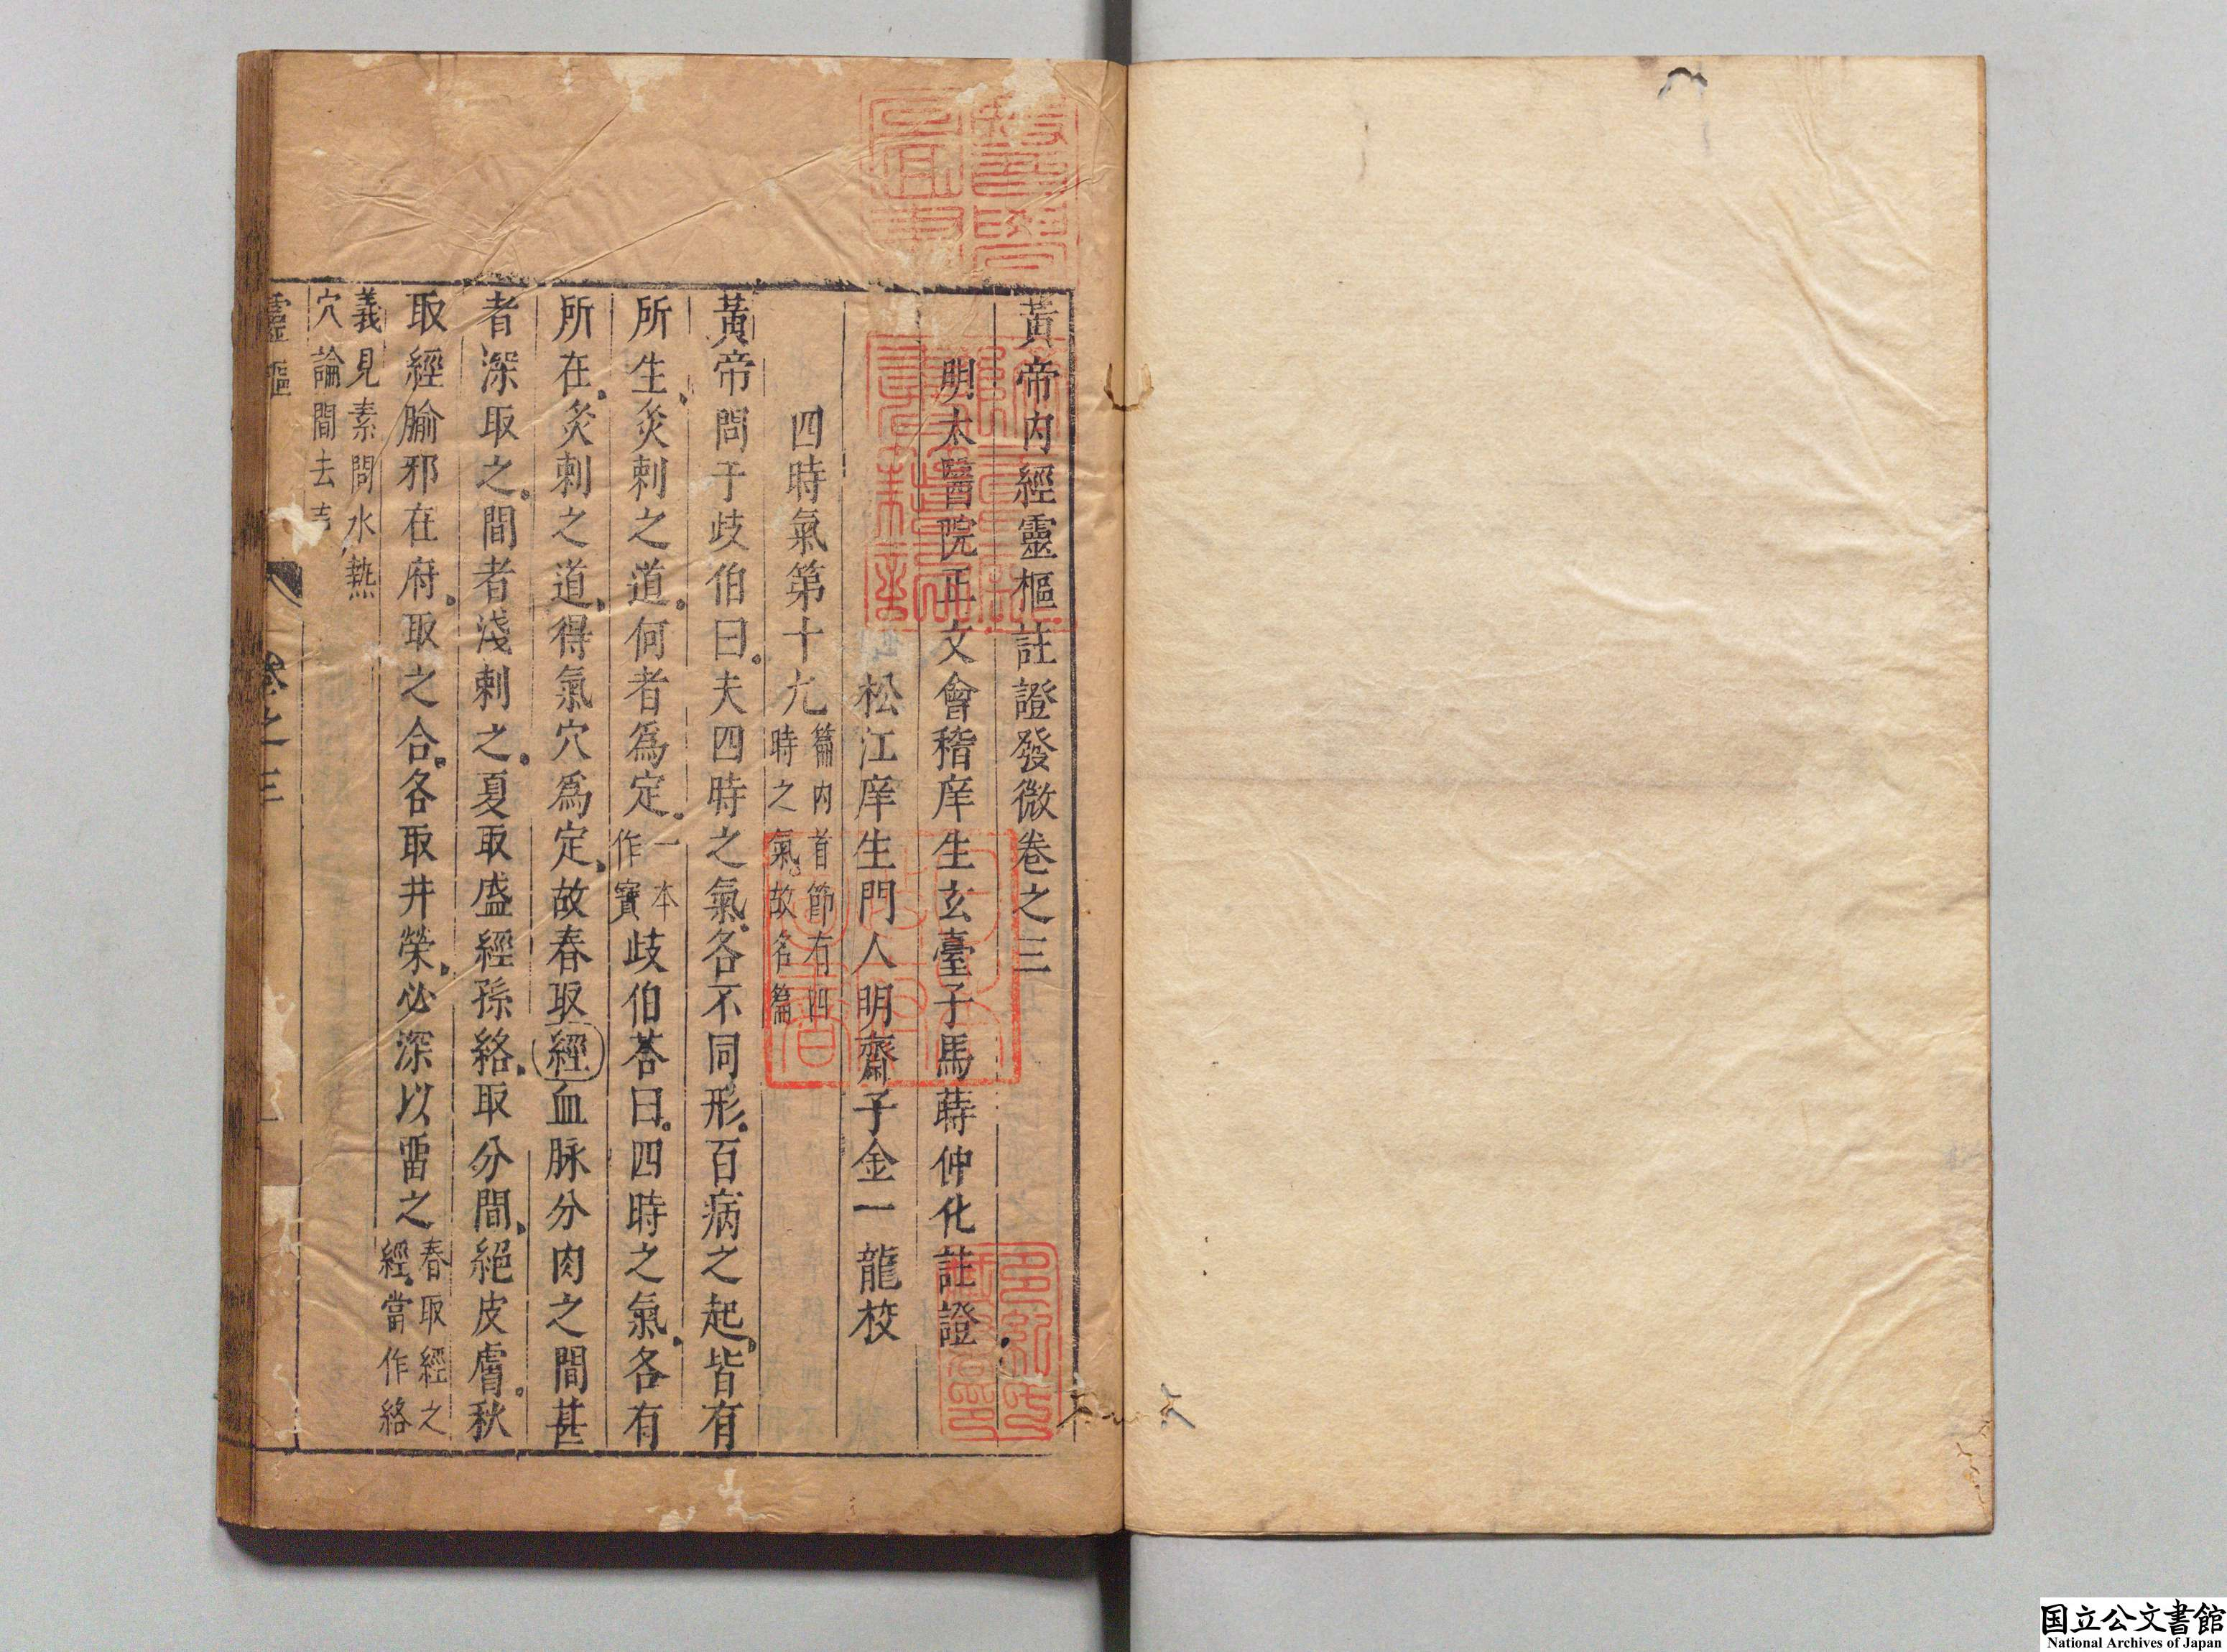 黃帝內經靈樞註證發微卷之三
明太醫院正文會稽庠生玄臺子馬蒔仲化註證
松江庠生門人明齋子金一龍校
四時氣第十九 篇內首節有四時之氣故名篇
黃帝問于歧伯曰夫四時之氣各不同形百病之起皆有
所生灸刺之道何者爲定 一本作寶 歧伯荅曰四時之氣各有
所在灸刺之道得氣穴爲定故春取經血脉分肉之間甚
者深取之間者淺刺之夏取盛經孫絡取分間絕皮膚秋
取經腧邪在府取之合各取井榮必深以畱之 春取經之經當作絡
義見素問水熱
穴論間去
靈樞
卷之三
国立公文書館
National Archives of Japan